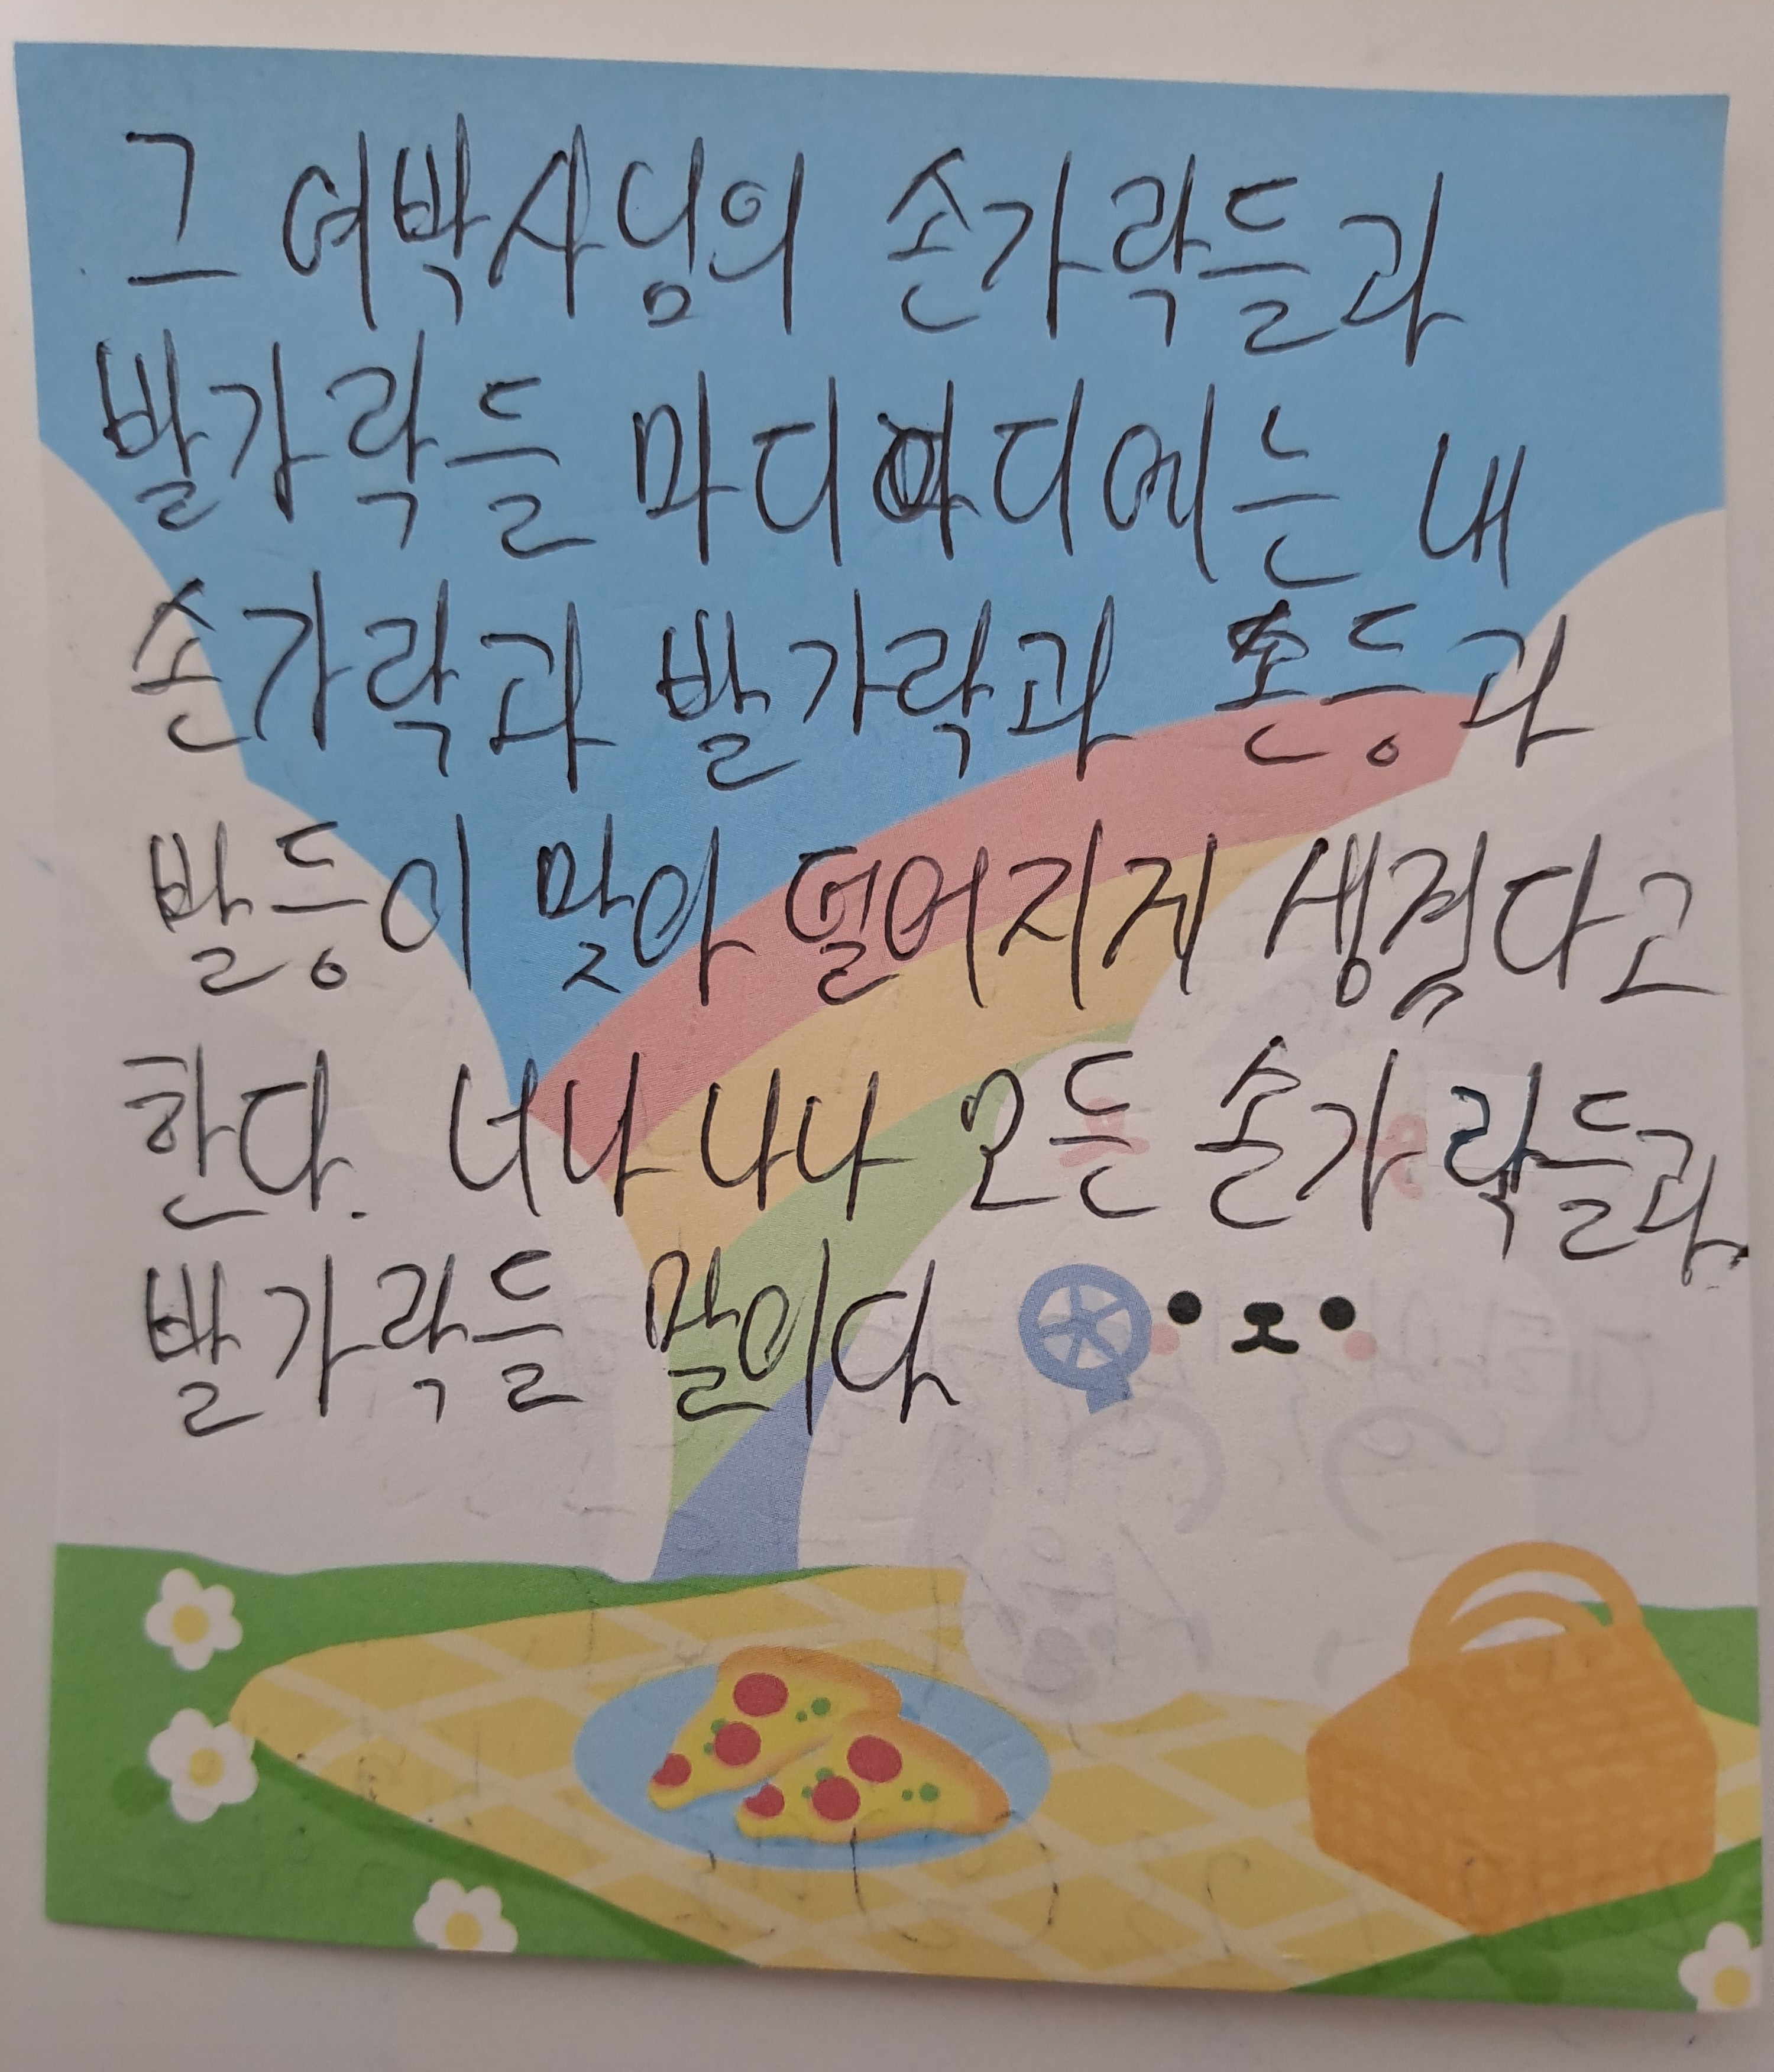 그 여박사님의 손가락들과
발가락들 마디마디에는 내
손가락과 발가락과 손등과
발등이 맞아 덜어지게 생겼다고
한다. 너나 나나 모든 손가락들과
발가락들 말이다